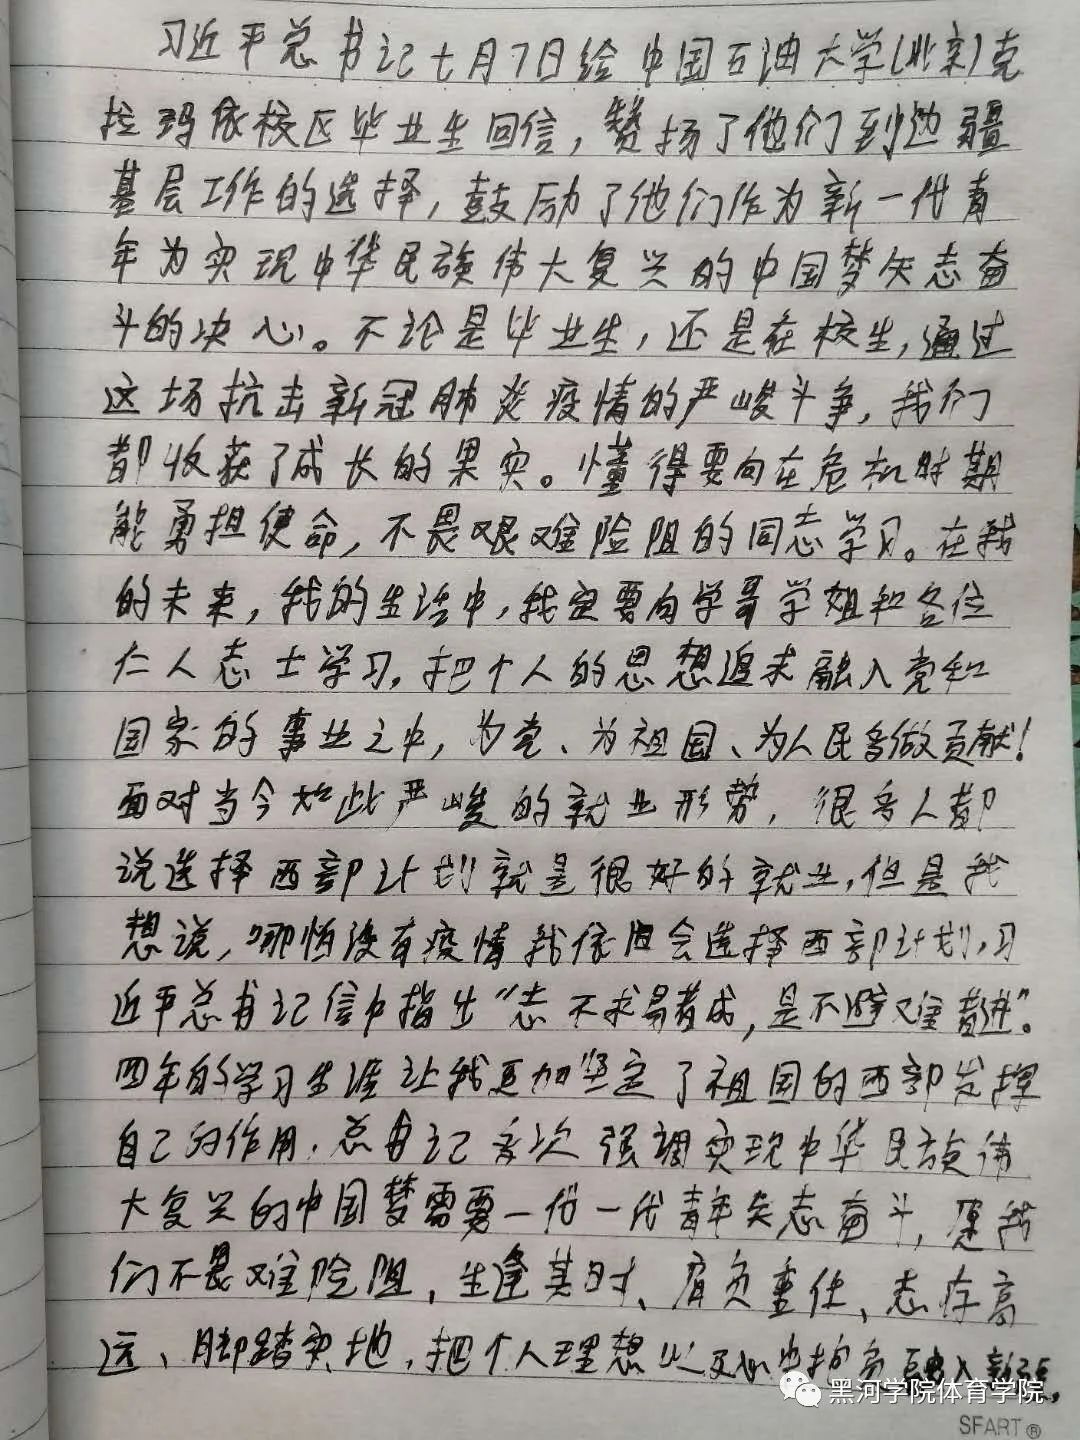 习近平总书记七月7日给中国石油大学(北京)克
拉玛依校区毕业生回信,赞扬了他们到边疆
基层工作的选择,鼓励了他们作为新一代青
年为实现中华民族伟大复兴的中国梦矢志奋
斗的决心。不论是毕业生,还是在校生,通过
这场抗击新冠肺炎疫情的严峻斗争,我们
都收获了成长的果实。懂得要向在危机时期
能勇担使命,不畏艰难险阻的同志学习。在我
的未来,我的生活中,我定要向学哥学姐和各位
仁人志士学习,把个人的思想追求融入党和
国家的事业之中,为党、为祖国、为人民多做贡献!
面对当今如此严峻的就业形势,很多人都
说选择西部计划就是很好的就业,但是我
想说,哪怕没有疫情我依旧会选择西部计划,习
近平总书记信中指出“志不求易者成,事不避难者进”。
四年的学习生涯让我更加坚定了祖国的西部发挥
自己的作用.总书记多次强调实现中华民族伟
大复兴的中国梦需要一代一代青年矢志奋斗,愿我
们不畏难险阻、生逢其时、肩负重任、志存高
远、脚踏实地,把个人理想以及
黑河学院体育学院
SFART®